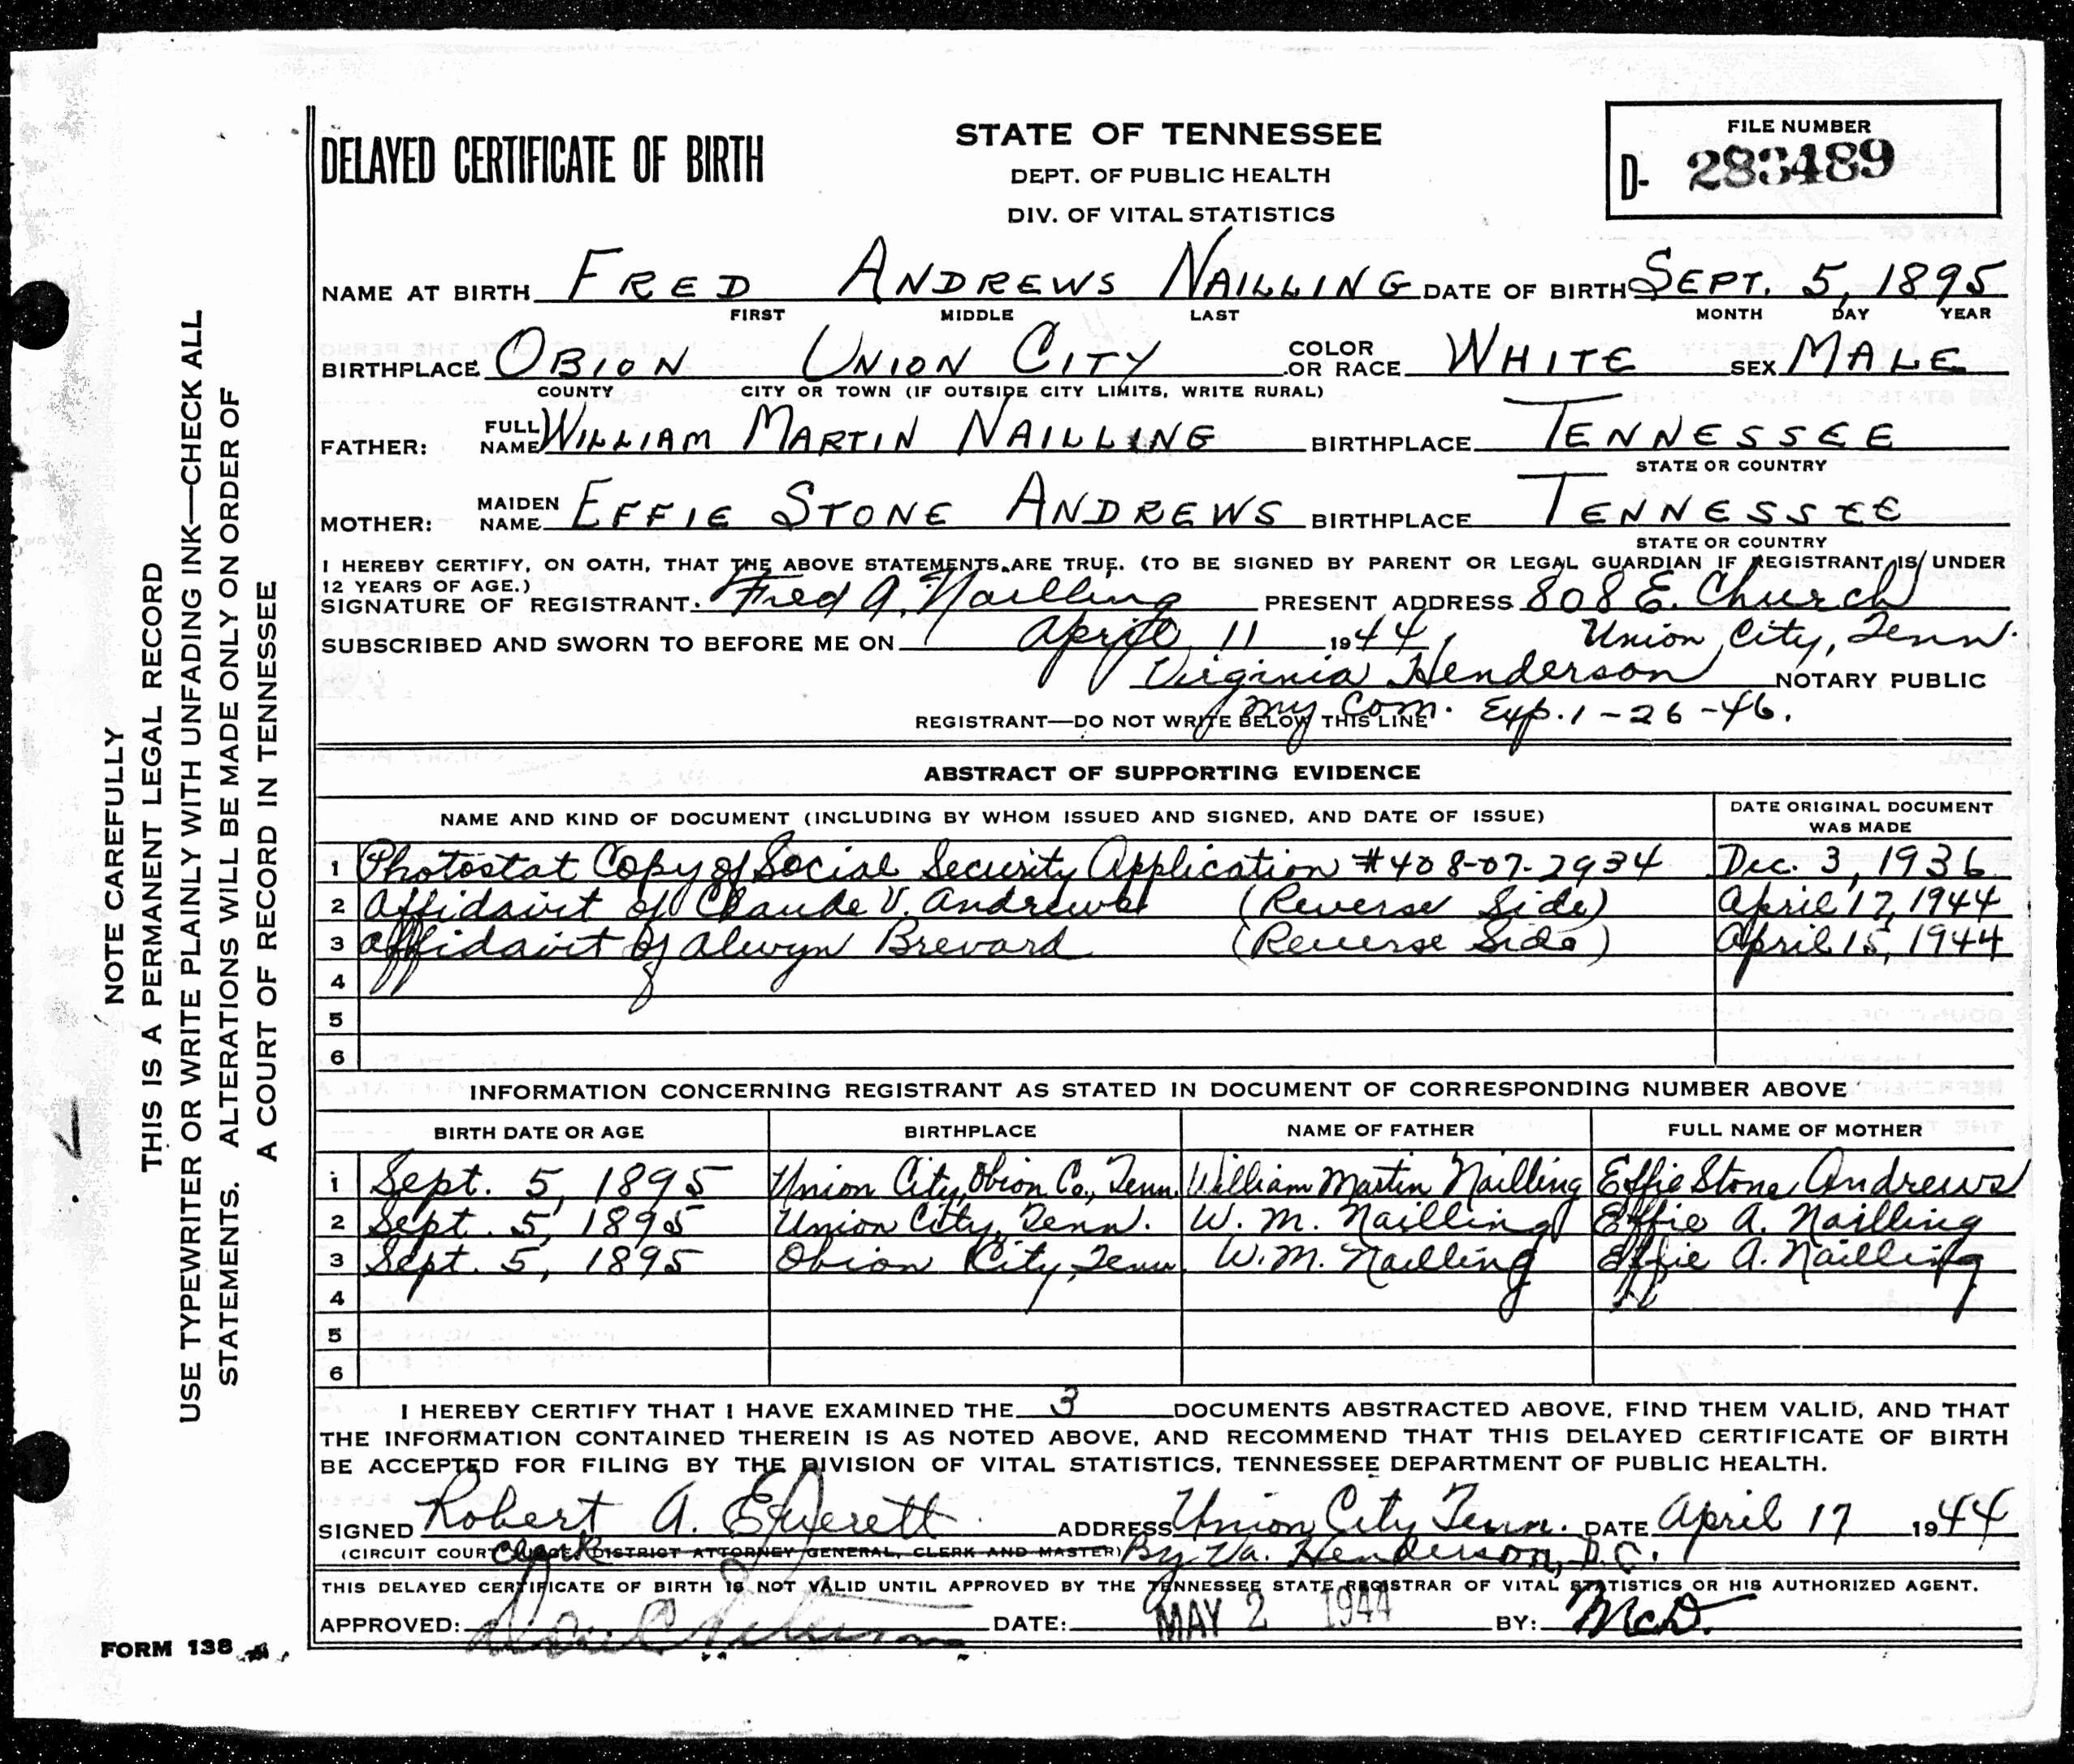 DELAYED CERTIFICATE OF BIRTH
STATE OF TENNESSEE
DEPT. OF PUBLIC HEALTH
DIV. OF VITAL STATISTICS
FILE NUMBER
D- 283489
NAME AT BIRTH FRED ANDREWS NAILLING DATE OF BIRTH SEPT. 5, 1895
FIRST MIDDLE LAST MONTH DAY YEAR
BIRTHPLACE OBION UNION CITY COLOR OR RACE WHITE SEX MALE
COUNTY CITY OR TOWN (IF OUTSIDE CITY LIMITS, WRITE RURAL)
FATHER: FULL NAME WILLIAM MARTIN NAILLING BIRTHPLACE TENNESSEE
STATE OR COUNTRY
MOTHER: MAIDEN NAME EFFIE STONE ANDREWS BIRTHPLACE TENNESSEE
STATE OR COUNTRY
I HEREBY CERTIFY, ON OATH, THAT THE ABOVE STATEMENTS ARE TRUE. (TO BE SIGNED BY PARENT OR LEGAL GUARDIAN IF REGISTRANT IS UNDER
12 YEARS OF AGE.)
SIGNATURE OF REGISTRANT. Fred A. Nailling PRESENT ADDRESS 808 E. Church
SUBSCRIBED AND SWORN TO BEFORE ME ON April 11 1944 Union City, Tenn.
Virginia Henderson NOTARY PUBLIC
REGISTRANT—DO NOT WRITE BELOW THIS LINE My Com. Exp. 1-26-46.
ABSTRACT OF SUPPORTING EVIDENCE
NAME AND KIND OF DOCUMENT (INCLUDING BY WHOM ISSUED AND SIGNED, AND DATE OF ISSUE) DATE ORIGINAL DOCUMENT WAS MADE
1 Photostat Copy of Social Security Application #408-07-2934 Dec. 3, 1936
2 Affidavit of Claude V. Andrews (Reverse Side) April 17, 1944
3 Affidavit of Alwyn Brevard (Reverse Side) April 15, 1944
4
5
6
INFORMATION CONCERNING REGISTRANT AS STATED IN DOCUMENT OF CORRESPONDING NUMBER ABOVE
BIRTH DATE OR AGE BIRTHPLACE NAME OF FATHER FULL NAME OF MOTHER
1 Sept. 5, 1895 Union City, Obion Co., Tenn. William Martin Nailling Effie Stone Andrews
2 Sept. 5, 1895 Union City, Tenn. W. M. Nailling Effie A. Nailling
3 Sept. 5, 1895 Obion City, Tenn. W. M. Nailling Effie A. Nailling
4
5
6
I HEREBY CERTIFY THAT I HAVE EXAMINED THE 3 DOCUMENTS ABSTRACTED ABOVE, FIND THEM VALID, AND THAT
THE INFORMATION CONTAINED THEREIN IS AS NOTED ABOVE, AND RECOMMEND THAT THIS DELAYED CERTIFICATE OF BIRTH
BE ACCEPTED FOR FILING BY THE DIVISION OF VITAL STATISTICS, TENNESSEE DEPARTMENT OF PUBLIC HEALTH.
SIGNED Robert A. Everett ADDRESS Union City Tenn. DATE April 17 1944
(CIRCUIT COURT Clerk DISTRICT ATTORNEY GENERAL, CLERK AND MASTER) By Va. Henderson, D.C.
THIS DELAYED CERTIFICATE OF BIRTH IS NOT VALID UNTIL APPROVED BY THE TENNESSEE STATE REGISTRAR OF VITAL STATISTICS OR HIS AUTHORIZED AGENT.
APPROVED: DATE: MAY 2 1944 BY: McD.
FORM 138
NOTE CAREFULLY
THIS IS A PERMANENT LEGAL RECORD
USE TYPEWRITER OR WRITE PLAINLY WITH UNFADING INK—CHECK ALL
STATEMENTS. ALTERATIONS WILL BE MADE ONLY ON ORDER OF
A COURT OF RECORD IN TENNESSEE